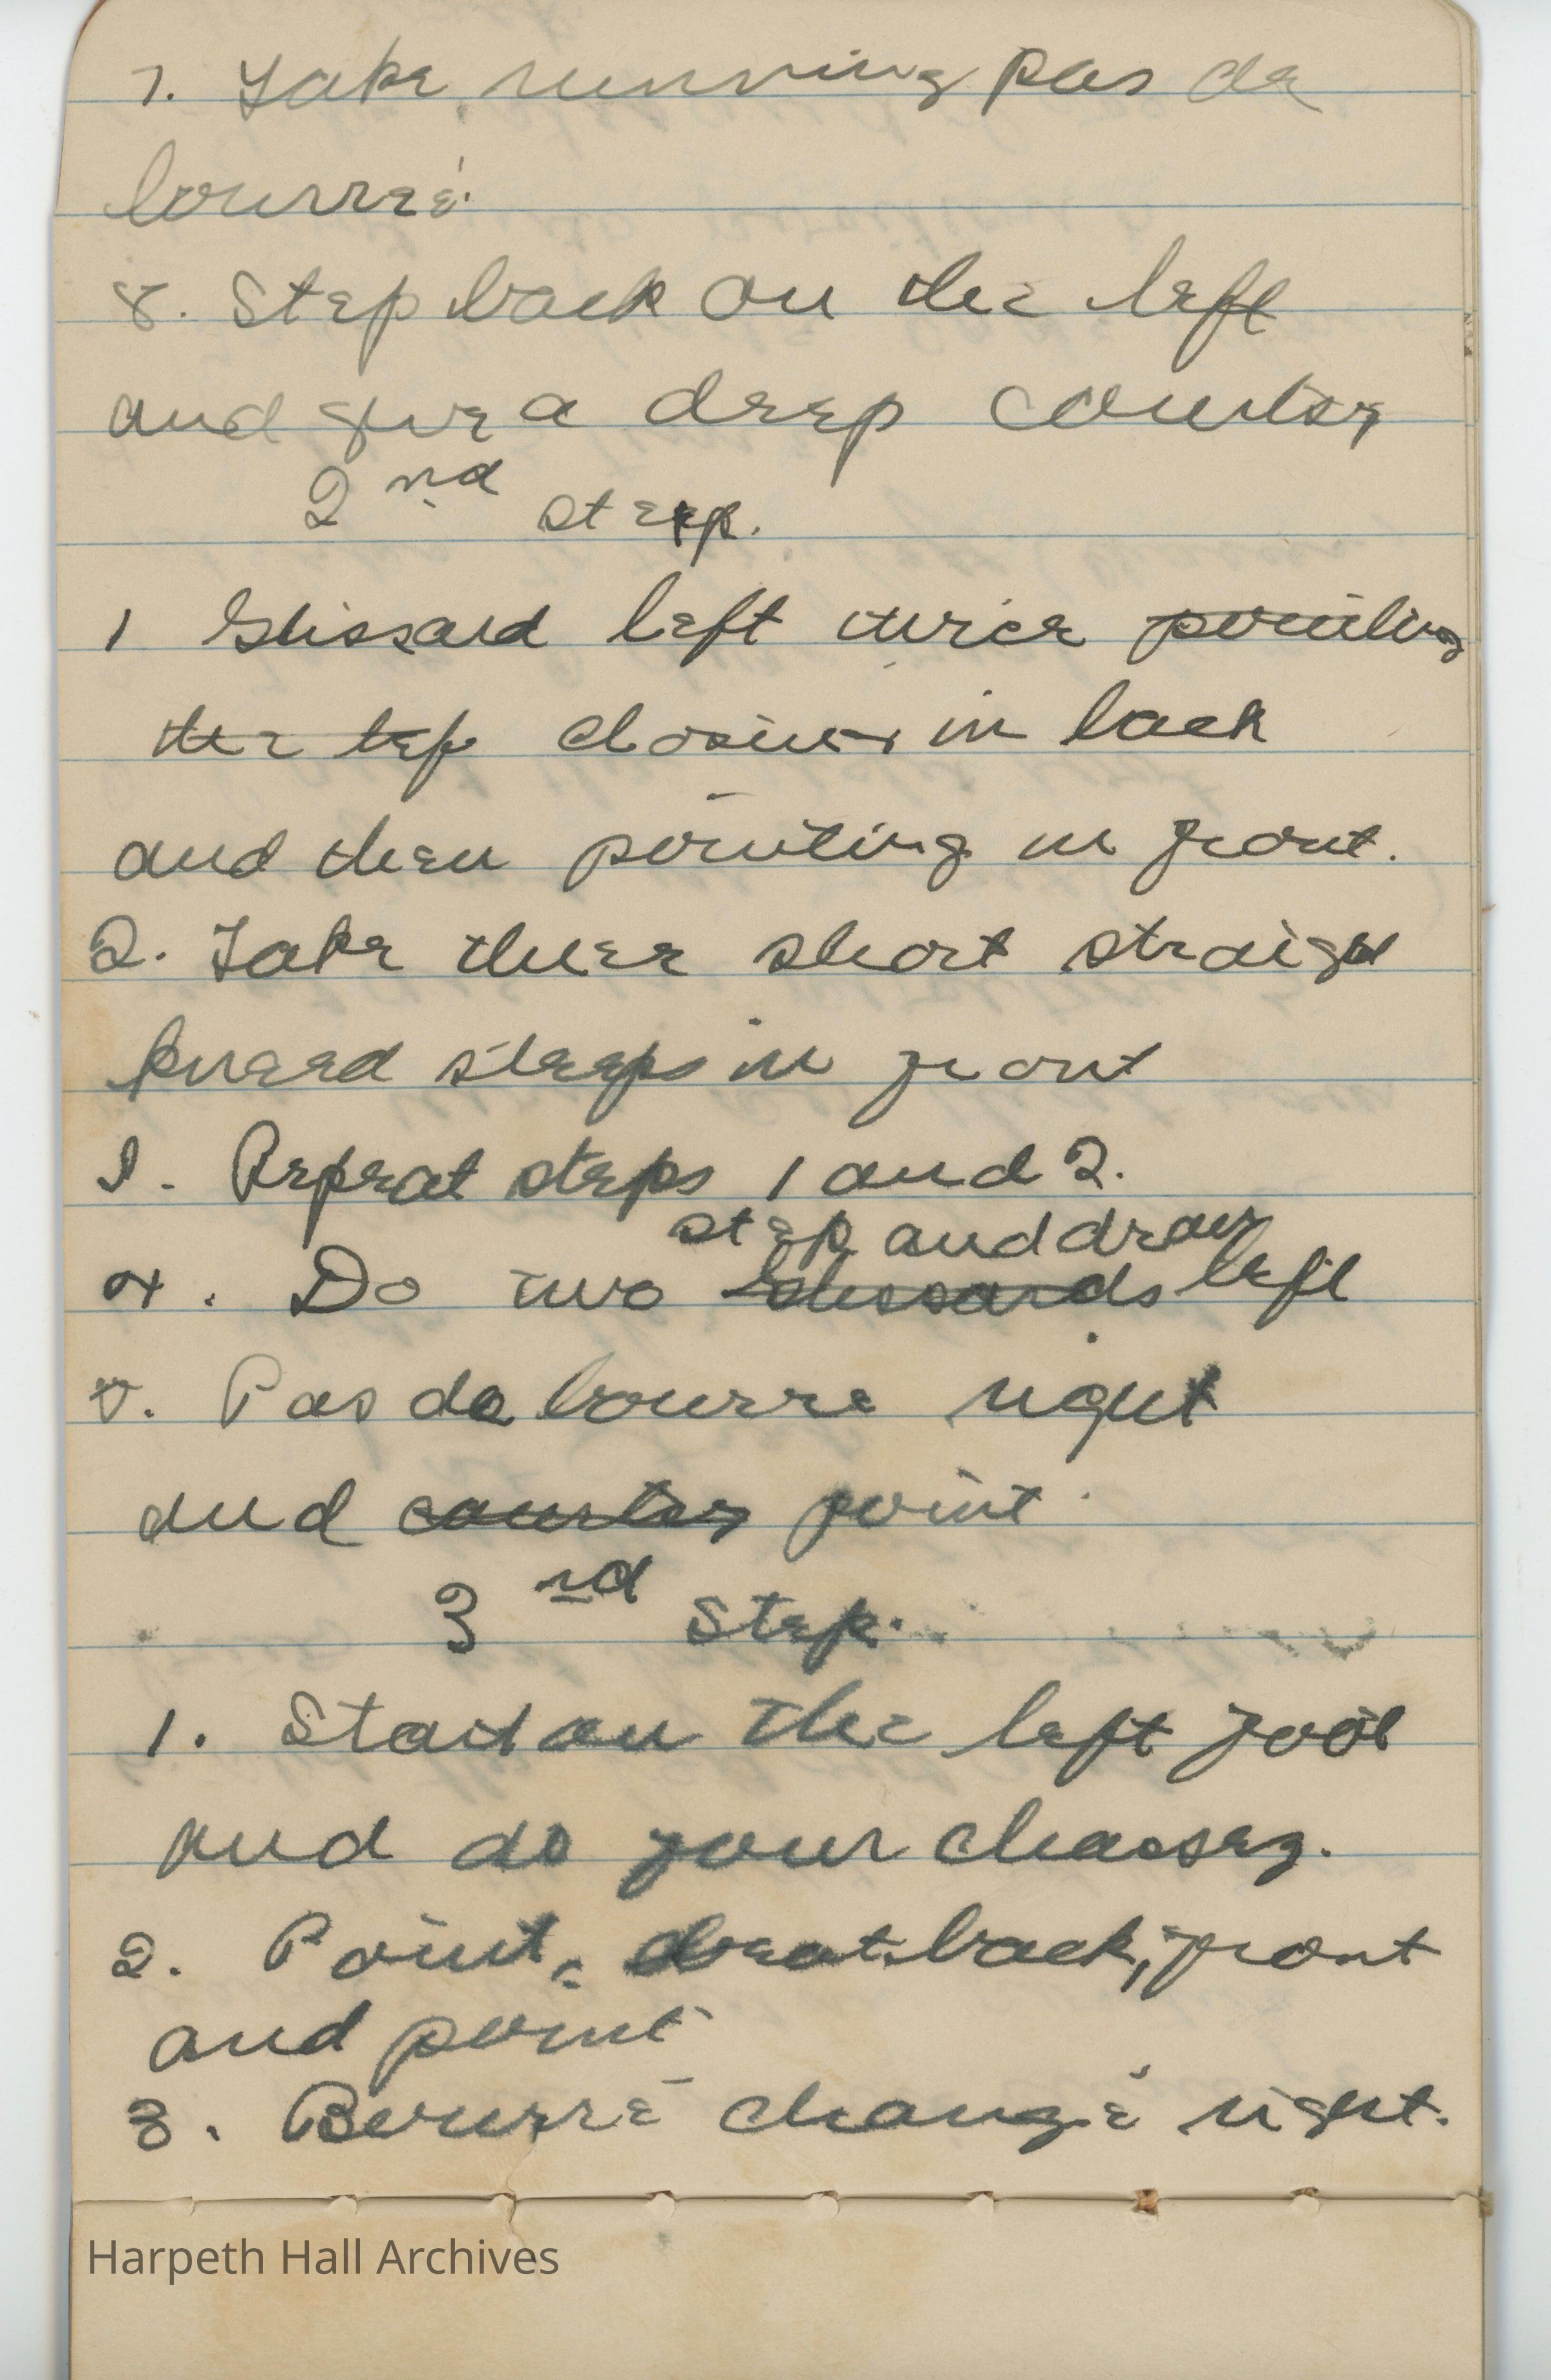 7. Take running pas de
bourreé.
8. Step back on the left
and give a deep courtsy
2nd step.
1 Glissard left twice pointing
the left closing in back
and then pointing in front.
2. Take three short straight
kneed steps in front
3. Repeat steps 1 and 2.
step and draw
4. Do two Glissards left
5. Pas de bourre right
and courtsy point.
3rd Step.
1. Start on the left foot
and do four chassey.
2. Point, beat back, front
and point
3. Bourré changé right.
Harpeth Hall Archives